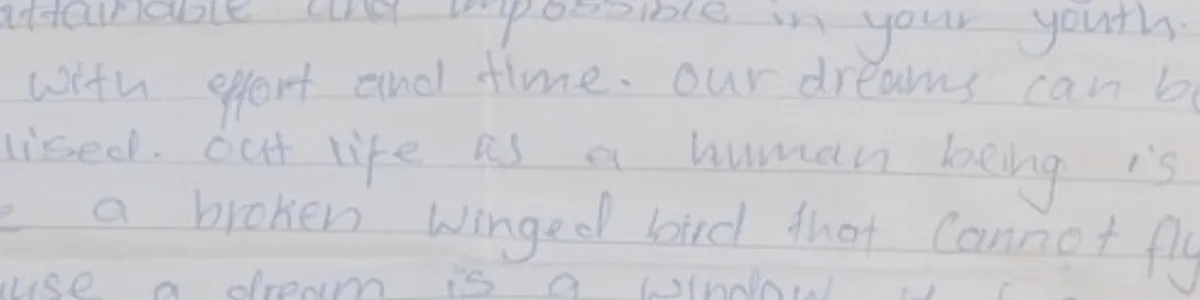 attainable and impossible in your youth.
with effort and time. our dreams can be
lised. out life as a human being is
a broken winged bird that cannot fly
use a dream is a window